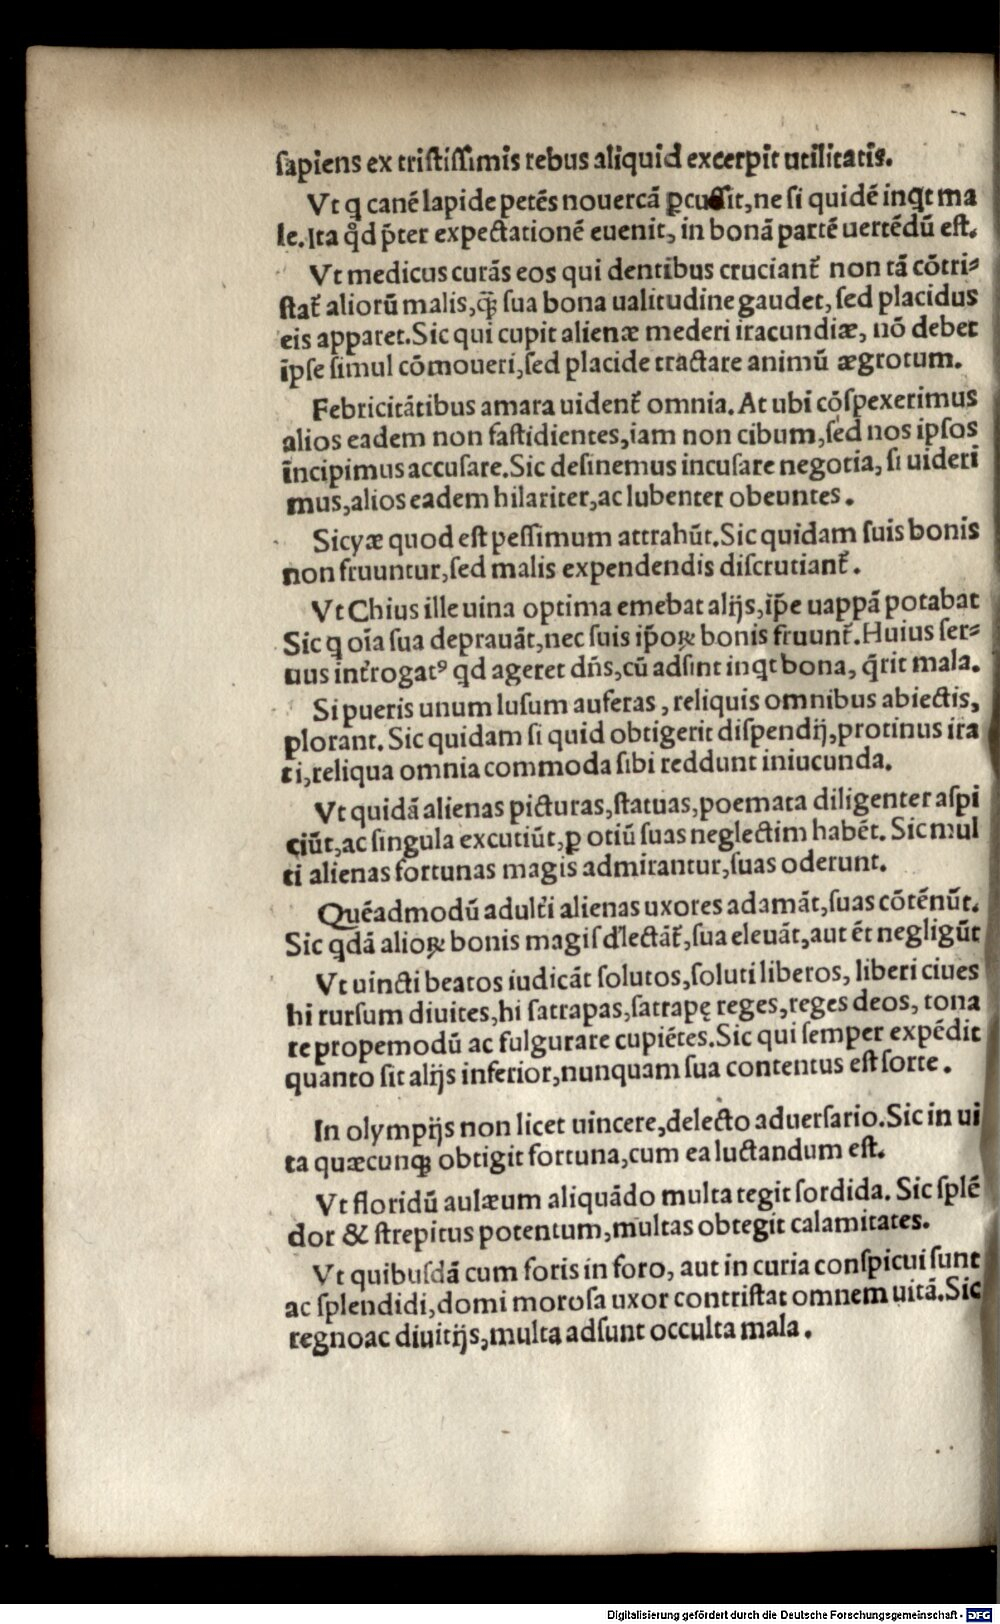 sapiens ex tristissimis rebus aliquid excerpit utilitatis.
Vt q canē lapide petēs nouercā ꝑcussit, ne si quidē inqt ma
le. Ita qd̊ p̄ter expectationē euenit, in bonā partē uertēdū est.
Vt medicus curās eos qui dentibus cruciant᷑ non tā cōtri⸗
stat᷑ aliorū malis, q̄ꝫ sua bona ualitudine gaudet, sed placidus
eis apparet. Sic qui cupit alienæ mederi iracundiæ, nō debet
ipse simul cōmoueri, sed placide tractare animū ægrotum.
Febricitātibus amara uident᷑ omnia. At ubi cōspexerimus
alios eadem non fastidientes, iam non cibum, sed nos ipsos
incipimus accusare. Sic desinemus incusare negotia, si uideri
mus, alios eadem hilariter, ac lubenter obeuntes.
Sicyæ quod est pessimum attrahūt. Sic quidam suis bonis
non fruuntur, sed malis expendendis discrutiant᷑.
Vt Chius ille uina optima emebat alijs, ip̄e uappā potabat
Sic q oīa sua deprauāt, nec suis ip̄oꝝ bonis fruunt᷑. Huius ser⸗
uus int̓rogatꝰ qd ageret dn̄s, cū adsint inqt bona, q̄rit mala.
Si pueris unum lusum auferas, reliquis omnibus abiectis,
plorant. Sic quidam si quid obtigerit dispendij, protinus ira
ti, reliqua omnia commoda sibi reddunt iniucunda.
Vt quidā alienas picturas, statuas, poemata diligenter aspi
ciūt, ac singula excutiūt, ꝑ otiū suas neglectim habēt. Sic mul
ti alienas fortunas magis admirantur, suas oderunt.
Quēadmodū adult̓i alienas uxores adamāt, suas cōtēnūt.
Sic qdā alioꝝ bonis magis d̓lectāt᷑, sua eleuāt, aut ēt negligūt
Vt uincti beatos iudicāt solutos, soluti liberos, liberi ciues
hi rursum diuites, hi satrapas, satrapę reges, reges deos, tona
re propemodū ac fulgurare cupiētes. Sic qui semper expēdit
quanto sit alijs inferior, nunquam sua contentus est sorte.
In olympijs non licet uincere, delecto aduersario. Sic in ui
ta quæcunqꝫ obtigit fortuna, cum ea luctandum est.
Vt floridū aulæum aliquādo multa tegit sordida. Sic splē
dor & strepitus potentum, multas obtegit calamitates.
Vt quibusdā cum foris in foro, aut in curia conspicui sunt
ac splendidi, domi morosa uxor contristat omnem uitā. Sic
regno ac diuitijs, multa adsunt occulta mala.
Digitalisierung gefördert durch die Deutsche Forschungsgemeinschaft - DFG